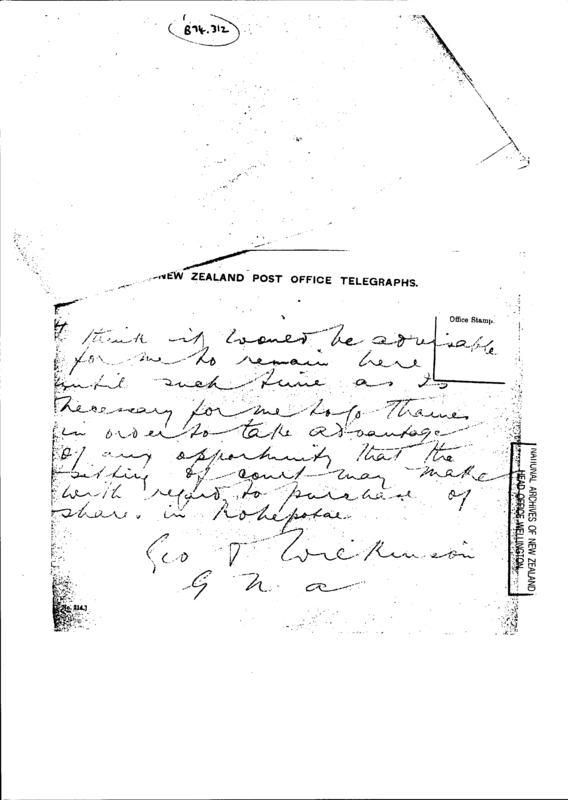 B74.312
NEW ZEALAND POST OFFICE TELEGRAPHS.
Office Stamp.
I think it would be advisable
for me to remain here
until such time as is
necessary for me to go Thames
in order to take advantage
of any opportunity that the
sitting of court may make
with regard to purchase of
shares in Rohepotae
Geo T Wilkinson
G N A
NATIONAL ARCHIVES OF NEW ZEALAND
HEAD OFFICE WELLINGTON